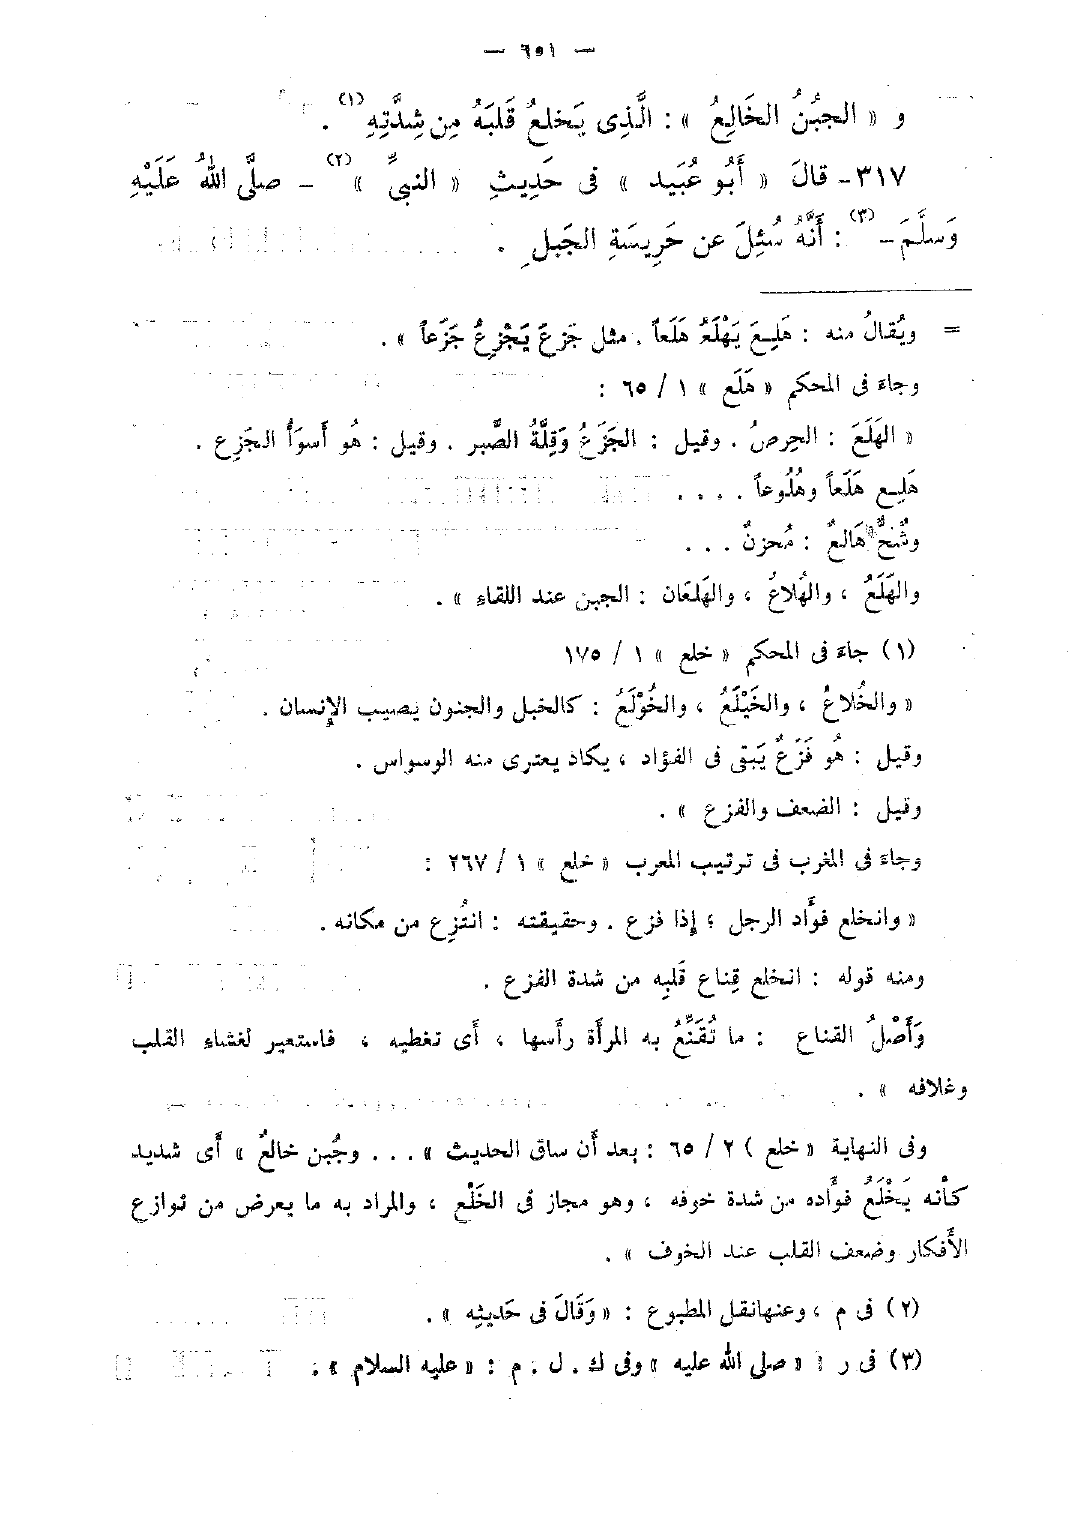 — ٦٥١ —
و « الجبُنُ الخَالِعُ » : الَّذِى يَخلعُ قَلبَهُ مِن شِدَّتِهِ (١) .
٣١٧- قالَ « أَبُو عُبَيد » فى حَدِيثِ « النبىِّ » (٢) – صلَّى اللهُ عَلَيْهِ
وَسَلَّمَ – (٣) : أَنَّهُ سُئِلَ عن حَرِيسَةِ الجَبلِ .
= ويُقالُ منه : هَلِعَ يَهْلَعُ هَلَعاً . مثل جَزِعَ يَجْزعُ جَزَعاً » .
وجاءَ فى المحكم « هَلَع » ١ / ٦٥ :
« الهَلَعَ : الحِرصُ . وقيل : الجَزَعُ وَقِلَّةُ الصَّبر . وقيل : هُو أَسوَأُ الجَزع .
هَلِع هَلَعاً وهُلُوعاً . . . .
وشُحٌّ هَالعٌ : مُحزنٌ . . .
والهَلَعُ ، والهُلاعُ ، والهَلعَان : الجبن عند اللقاءِ » .
(١) جاءَ فى المحكم « خلع » ١ / ١٧٥
« والخُلاعُ ، والخَيْلَعُ ، والخُوْلَعُ : كالخبل والجنون يصيب الإنسان .
وقيل : هُو فَزَعٌ يَبَقى فى الفؤاد ، يكاد يعترى منه الوسواس .
وقيل : الضعف والفزع » .
وجاءَ فى المغرب فى ترتيب المعرب « خلع » ١ / ٢٦٧ :
« وانخلع فوأَد الرجل ؛ إذا فزع . وحقيقته : انتُزِع من مكانه .
ومنه قوله : انخلع قِناع قَلبِه من شدة الفزع .
وَأَصْلُ القناع : ما تُقَنِّعُ به المرأَة رأَسها ، أَى تغطيه ، فاستعير لغشاءِ القلب
وغلافه » .
وفى النهاية « خلع ) ٢ / ٦٥ : بعد أَن ساق الحديث » . . . وجُبن خالعٌ » أَى شديد
كأنه يَخْلَعُ فوأَده من شدة خوفه ، وهو مجاز فى الخَلْع ، والمراد به ما يعرض من نوازع
الأَفكار وضعف القلب عند الخوف » .
(٢) فى م ، وعنها نقل المطبوع : « وَقَالَ فى حَديثِه » .
(٣) فى ر : « صلى الله عليه » وفى ك . ل . م : « عليه السلام » .